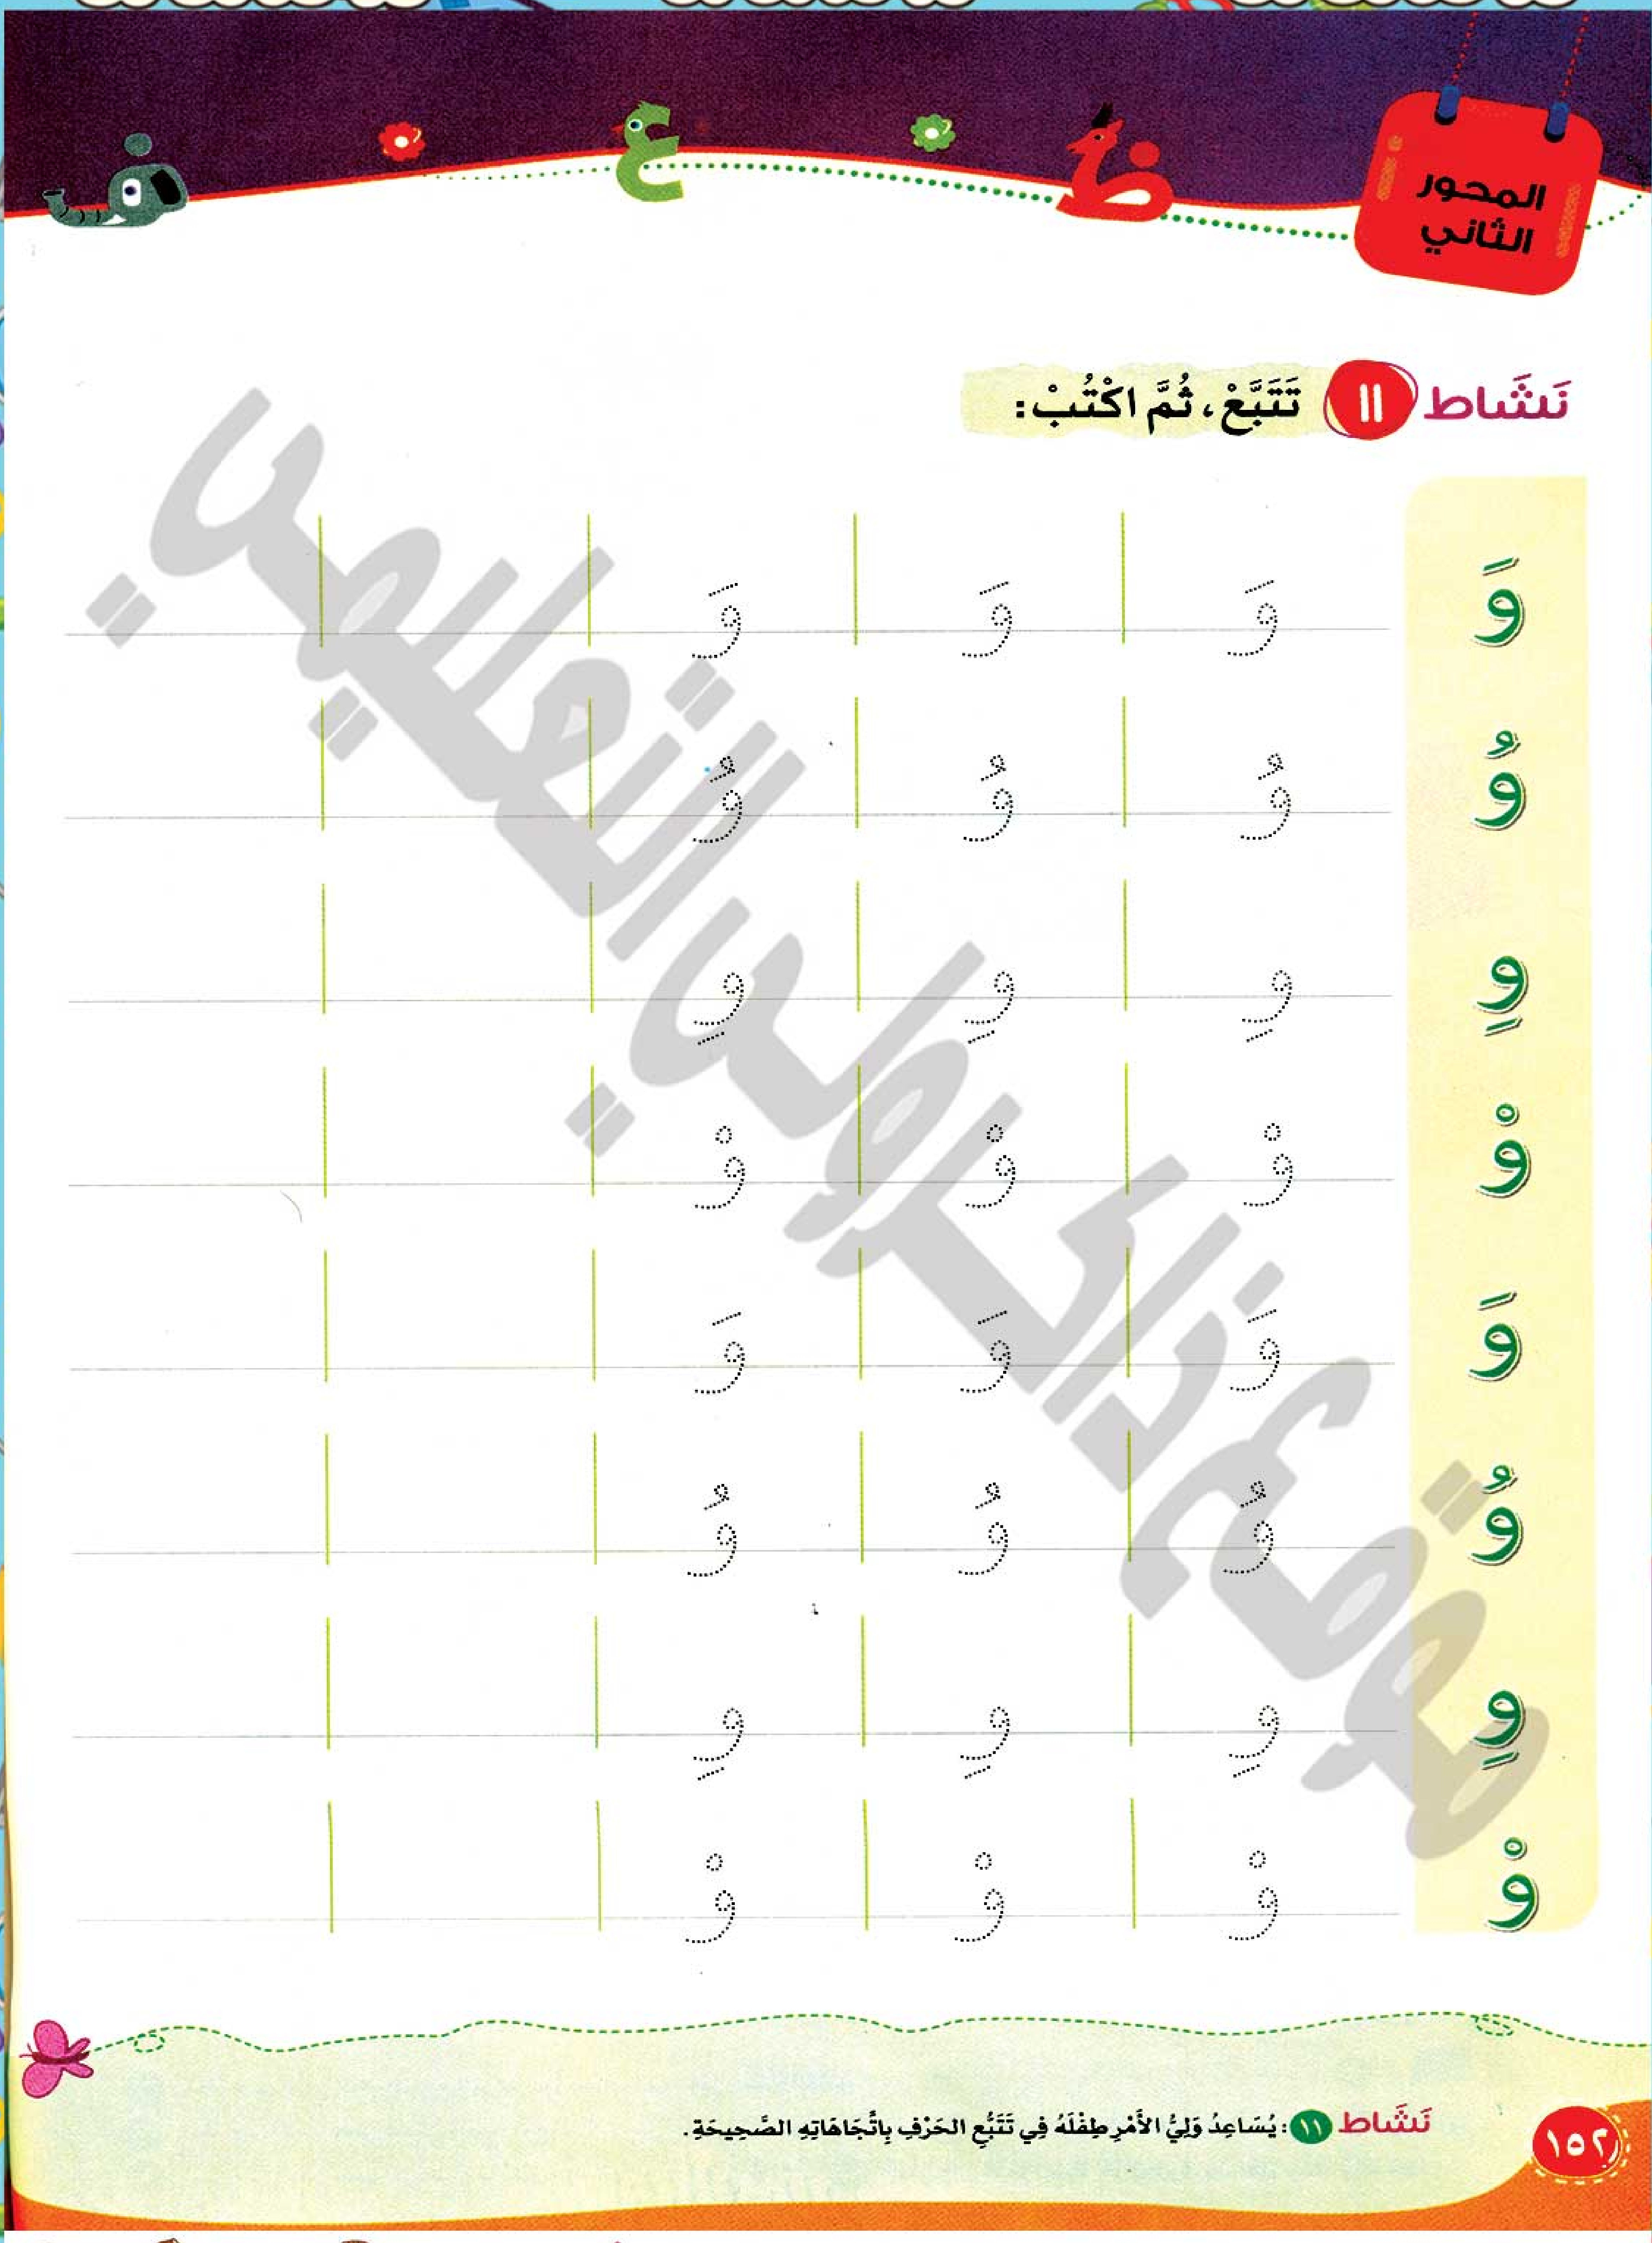 ظ ع ف
المحور
الثاني
نَشَاط ١١ تَتَبَّعْ، ثُمَّ اكْتُبْ:
وَ وَ وَ وَ
وُ وُ وُ وُ
وِ وِ وِ وِ
وْ وْ وْ وْ
وَ وَ وَ وَ
وُ وُ وُ وُ
وِ وِ وِ وِ
وْ وْ وْ وْ
موقع ذاكرولي التعليمي
نَشَاط ١١: يُسَاعِدُ وَلِيُّ الأَمْرِ طِفْلَهُ فِي تَتَبُّعِ الحَرْفِ بِاتِّجَاهَاتِهِ الصَّحِيحَةِ.
١٥٢